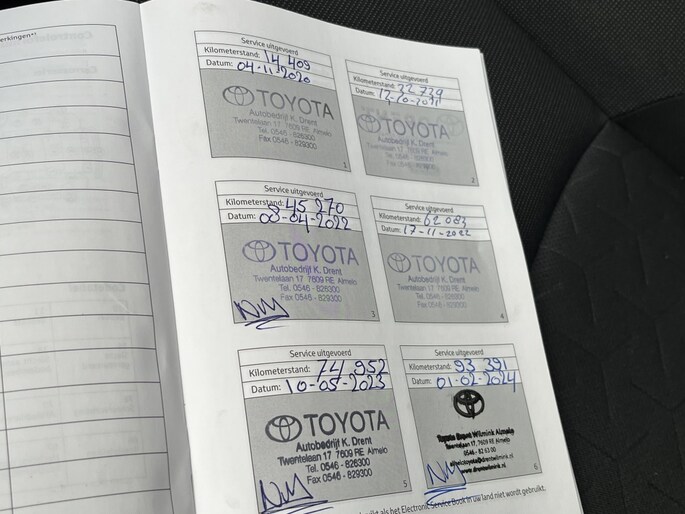 erkingen*¹
Service uitgevoerd
Kilometerstand: 14 409
Datum: 04-11-2020
TOYOTA
Autobedrijf K. Drent
Twentelaan 17 7609 RE Almelo
Tel. 0546 - 826300
Fax 0546 - 829300
1
Service uitgevoerd
Kilometerstand: 32 729
Datum: 12-10-2021
TOYOTA
Autobedrijf K. Drent
Twentelaan 17 7609 RE Almelo
2
Service uitgevoerd
Kilometerstand: 45 270
Datum: 08-04-2022
TOYOTA
Autobedrijf K. Drent
Twentelaan 17 7609 RE Almelo
Tel. 0546 - 826300
Fax 0546 - 829300
3
Service uitgevoerd
Kilometerstand: 62 083
Datum: 17-11-2022
TOYOTA
Autobedrijf K. Drent
Twentelaan 17 7609 RE Almelo
Tel. 0546 - 826300
Fax 0546 - 829300
4
Service uitgevoerd
Kilometerstand: 74 952
Datum: 10-05-2023
TOYOTA
Autobedrijf K. Drent
Twentelaan 17 7609 RE Almelo
Tel. 0546 - 826300
Fax 0546 - 829300
5
Service uitgevoerd
Kilometerstand: 93 391
Datum: 01-02-2024
Toyota Drent Wilmink Almelo
Twentelaan 17, 7609 RE Almelo
0546 - 82 63 00
www.drentwilmink.nl
6
als het Electronic Service Book in uw land niet wordt gebruikt.